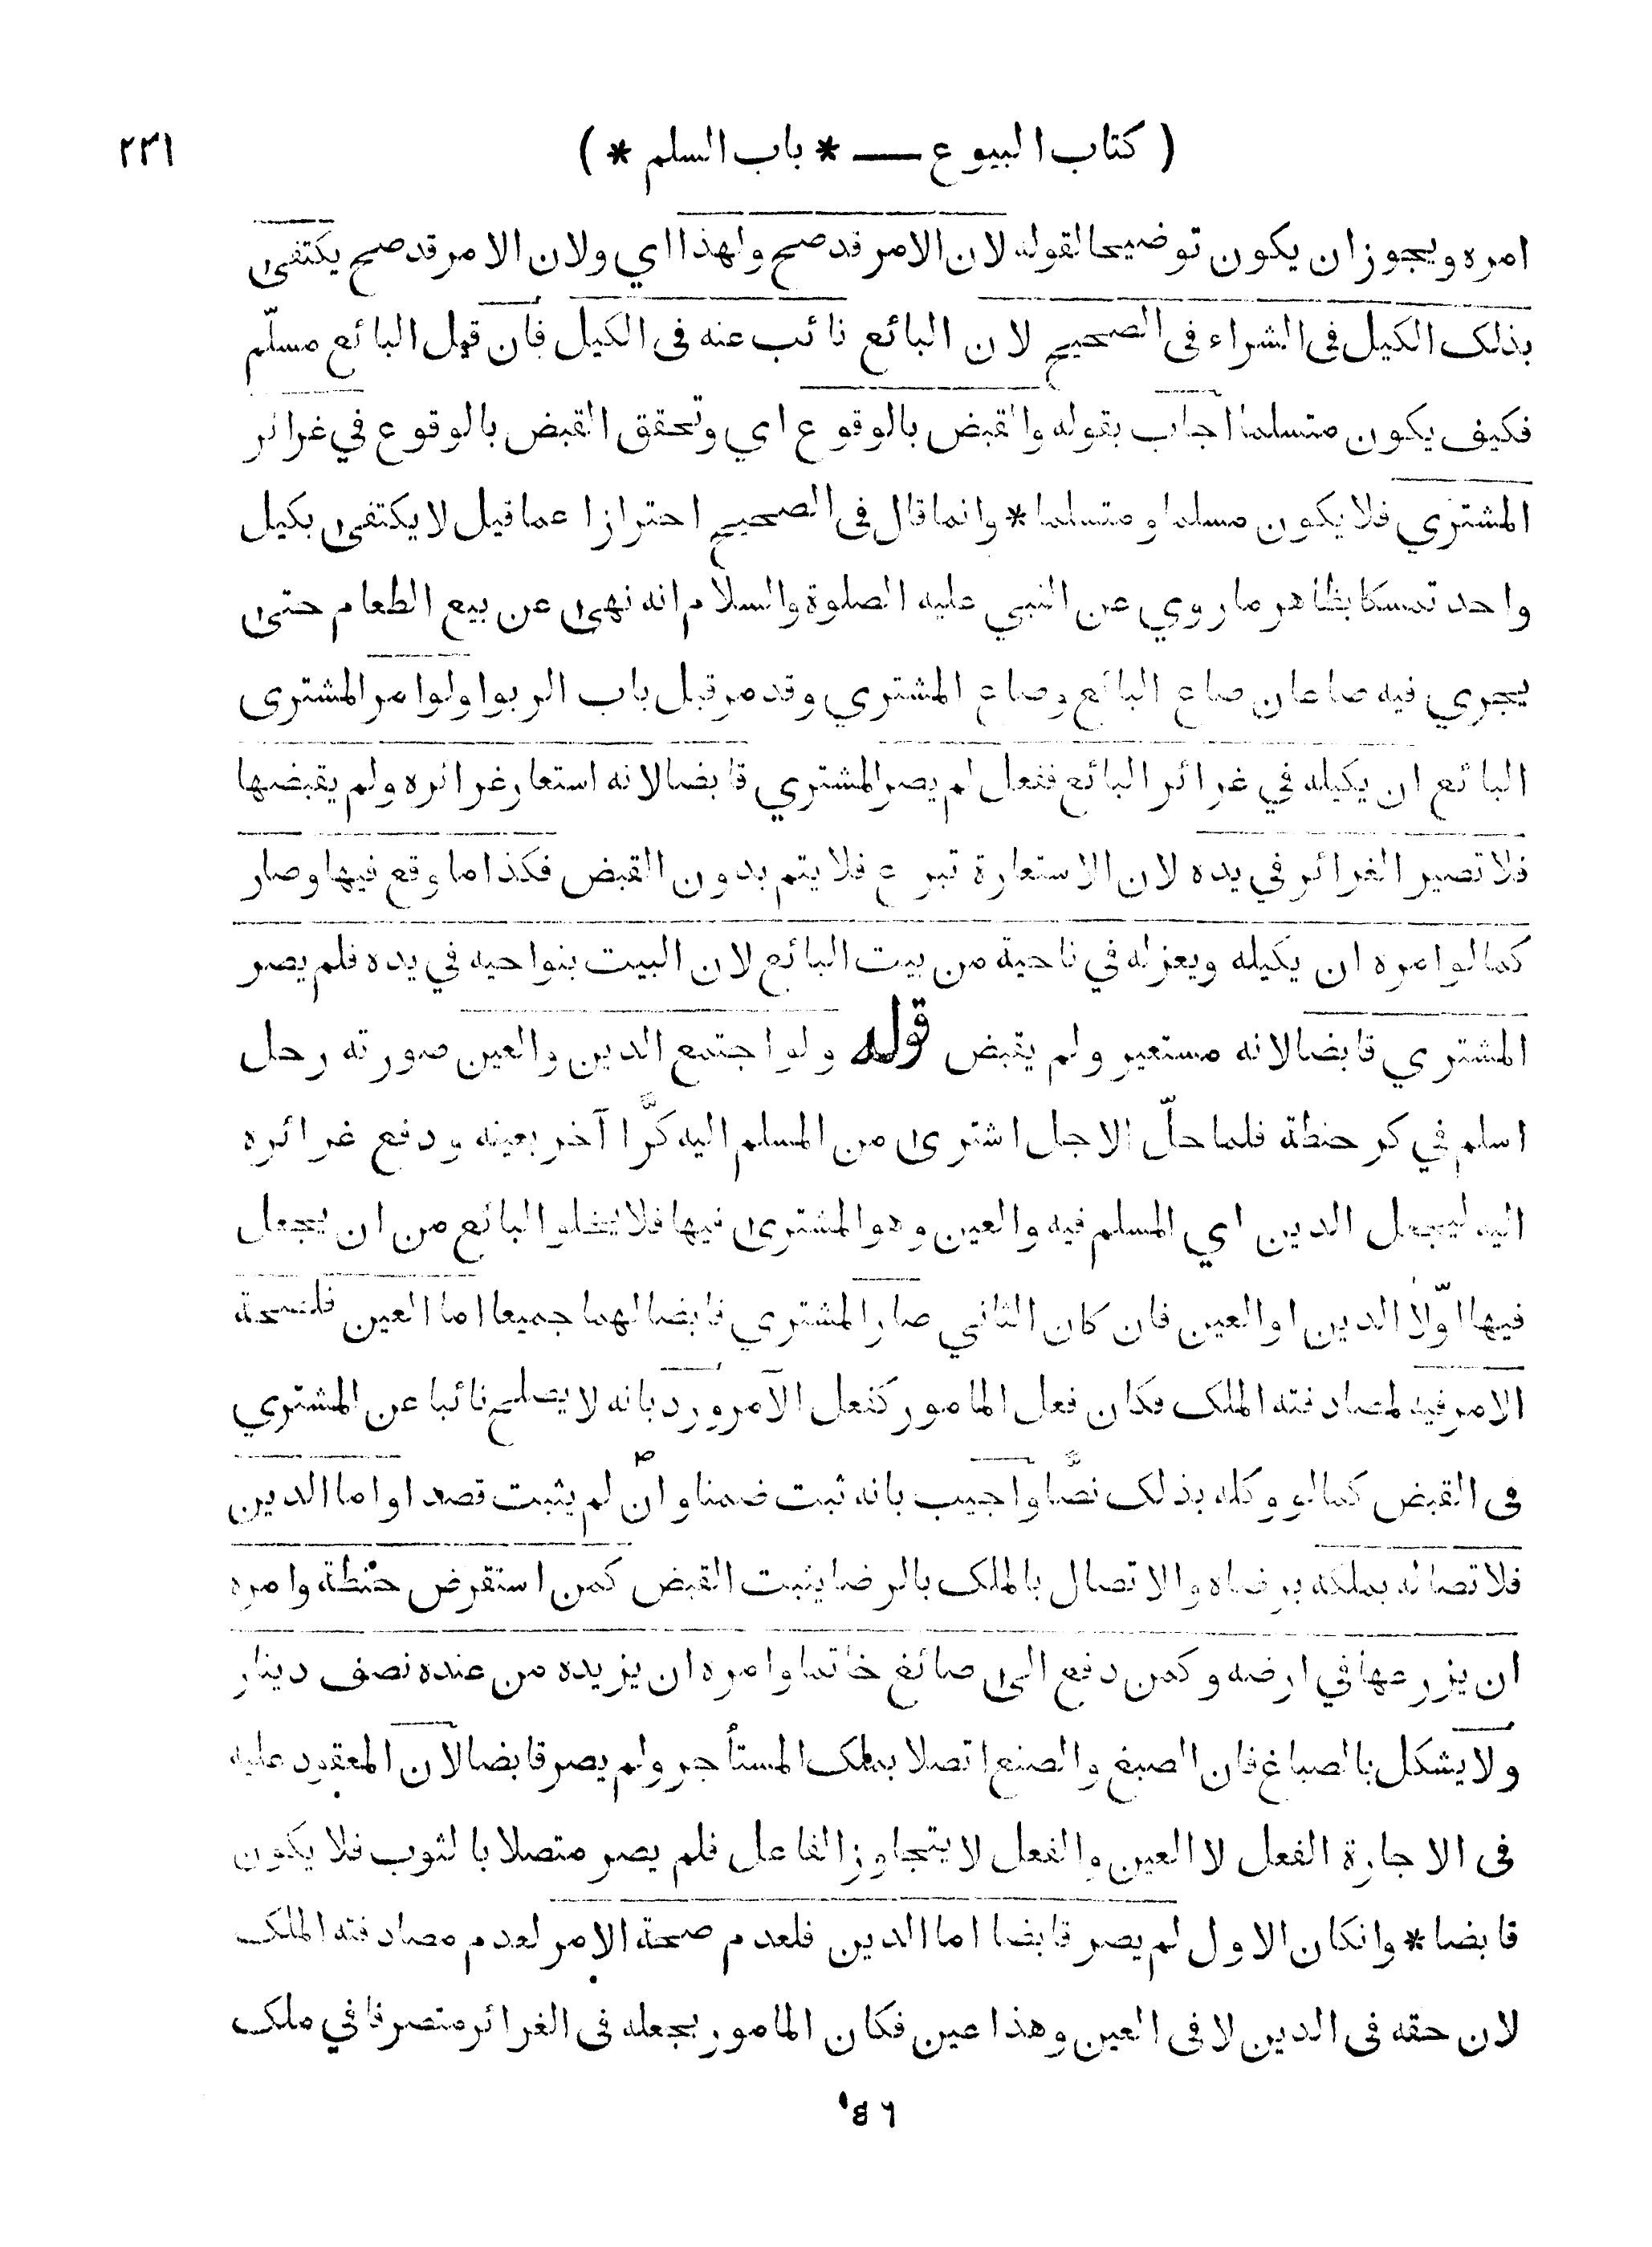 ( كتاب البيوع — * باب السلم * ) ٢٣١
امره ويجوز ان يكون توضيحا لقوله لان الامر قد صح ولهذا اي ولان الامر قد صح يكتفى
بذلك الكيل فى الشراء فى الصحيح لان البائع نائب عنه فى الكيل فان قيل البائع مسلّم
فكيف يكون متسلما اجاب بقوله والقبض بالوقوع اي وتحقق القبض بالوقوع في غرائر
المشتري فلا يكون مسلما ومتسلما * وانما قال فى الصحيح احترازا عما قيل لا يكتفى بكيل
واحد تمسكا بظاهر ما روي عن النبي عليه الصلوة والسلام انه نهى عن بيع الطعام حتى
يجري فيه صاعان صاع البائع وصاع المشتري وقد مر قبل باب الربوا ولوا مر المشترى
البائع ان يكيله في غرائر البائع ففعل لم يصر المشتري قابضا لانه استعار غرائره ولم يقبضها
فلا تصير الغرائر في يده لان الاستعارة تبرع فلا يتم بدون القبض فكذا ما وقع فيها وصار
كما لو امره ان يكيله ويعزله في ناحية من بيت البائع لان البيت بنواحيه في يده فلم يصر
المشتري قابضا لانه مستعير ولم يقبض قوله ولو اجتمع الدين والعين صورته رجل
اسلم في كر حنطة فلما حلّ الاجل اشترى من المسلم اليه كرًّا آخر بعينه ودفع غرائره
اليه ليجعل الدين اي المسلم فيه والعين وهو المشترى فيها فلا يخلو البائع من ان يجعل
فيها اوّلا الدين او العين فان كان الثاني صار المشتري قابضا لهما جميعا اما العين فلصحة
الامر فيه لمصادفته الملك فكان فعل المامور كفعل الآمر ورد بانه لا يصلح نائبا عن المشتري
فى القبض كما لو وكله بذلك نصًّا واجيب بانه ثبت ضمنا وان لم يثبت قصدا واما الدين
فلاتصاله بملكه برضاه والاتصال بالملك بالرضا يثبت القبض كمن استقرض حنطة وامره
ان يزرعها في ارضه وكمن دفع الى صائغ خاتما وامره ان يزيده من عنده نصف دينار
ولا يشكل بالصباغ فان الصبغ والصنع اتصلا بملك المستأجر ولم يصر قابضا لان المعقود عليه
فى الاجارة الفعل لا العين والفعل لا يتجاوز الفاعل فلم يصر متصلا بالثوب فلا يكون
قابضا * وانكان الاول لم يصر قابضا اما الدين فلعدم صحة الامر لعدم مصادفته الملك
لان حقه فى الدين لا فى العين وهذا عين فكان المامور بجعله فى الغرائر متصرفا في ملك